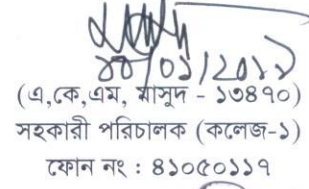 ০১/২০১৯
(এ,কে,এম, মাসুদ - ১৩৪৭০)
সহকারী পরিচালক (কলেজ-১)
ফোন নং : ৪১০৫০১১৭